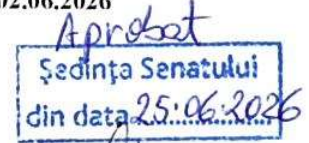 02.06.2026
Aprobat
Ședința Senatului
din data 25.06.2026